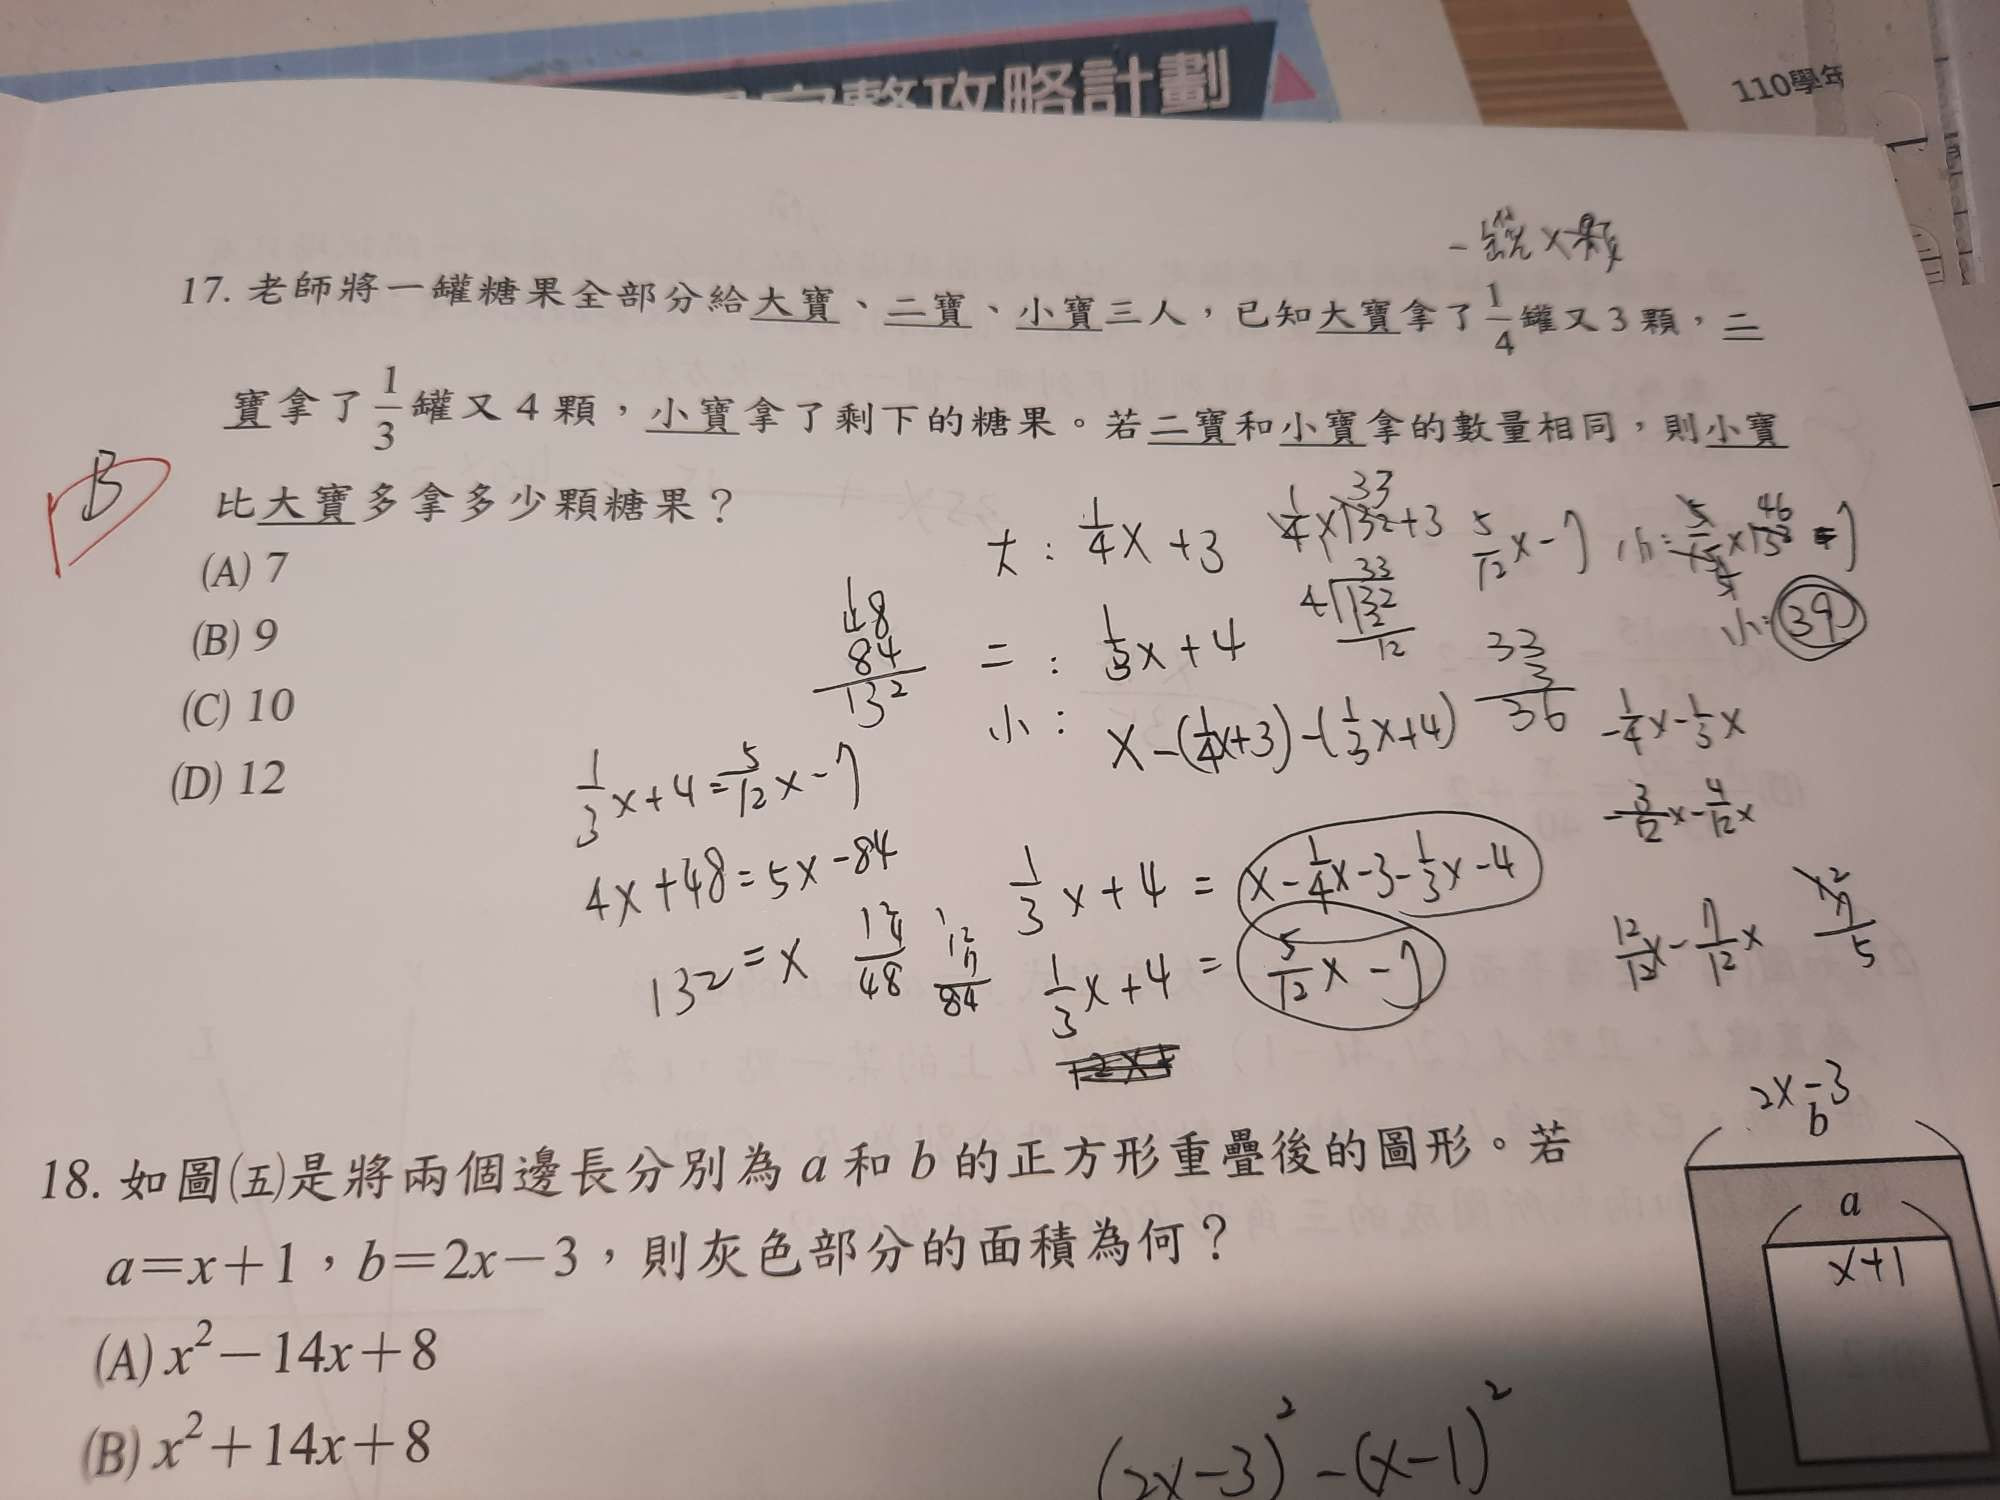 攻略計劃
110學年
一罐x顆
17. 老師將一罐糖果全部分給大寶、二寶、小寶三人，已知大寶拿了1/4罐又3顆，二
寶拿了1/3罐又4顆，小寶拿了剩下的糖果。若二寶和小寶拿的數量相同，則小寶
比大寶多拿多少顆糖果？
B
(A) 7
(B) 9
(C) 10
(D) 12
大：1/4x+3
二：1/3x+4
小：x-(1/4x+3)-(1/3x+4)
48
84
132
33
1/4x132+3
33
4√132
12
12
33
3
36
5/12x-7
小：
46
小：39
-1/4x-1/3x
-3/12x-4/12x
12/12x-7/12x
5
1/3x+4=5/12x-7
4x+48=5x-84
132=x
12
4
48
1
12
7
84
1/3x+4=x-1/4x-3-1/3x-4
1/3x+4=5/12x-7
18. 如圖(五)是將兩個邊長分別為a和b的正方形重疊後的圖形。若
a=x+1，b=2x-3，則灰色部分的面積為何？
(A) x²-14x+8
(B) x²+14x+8
2x-3
b
a
x+1
(2x-3)²-(x-1)²